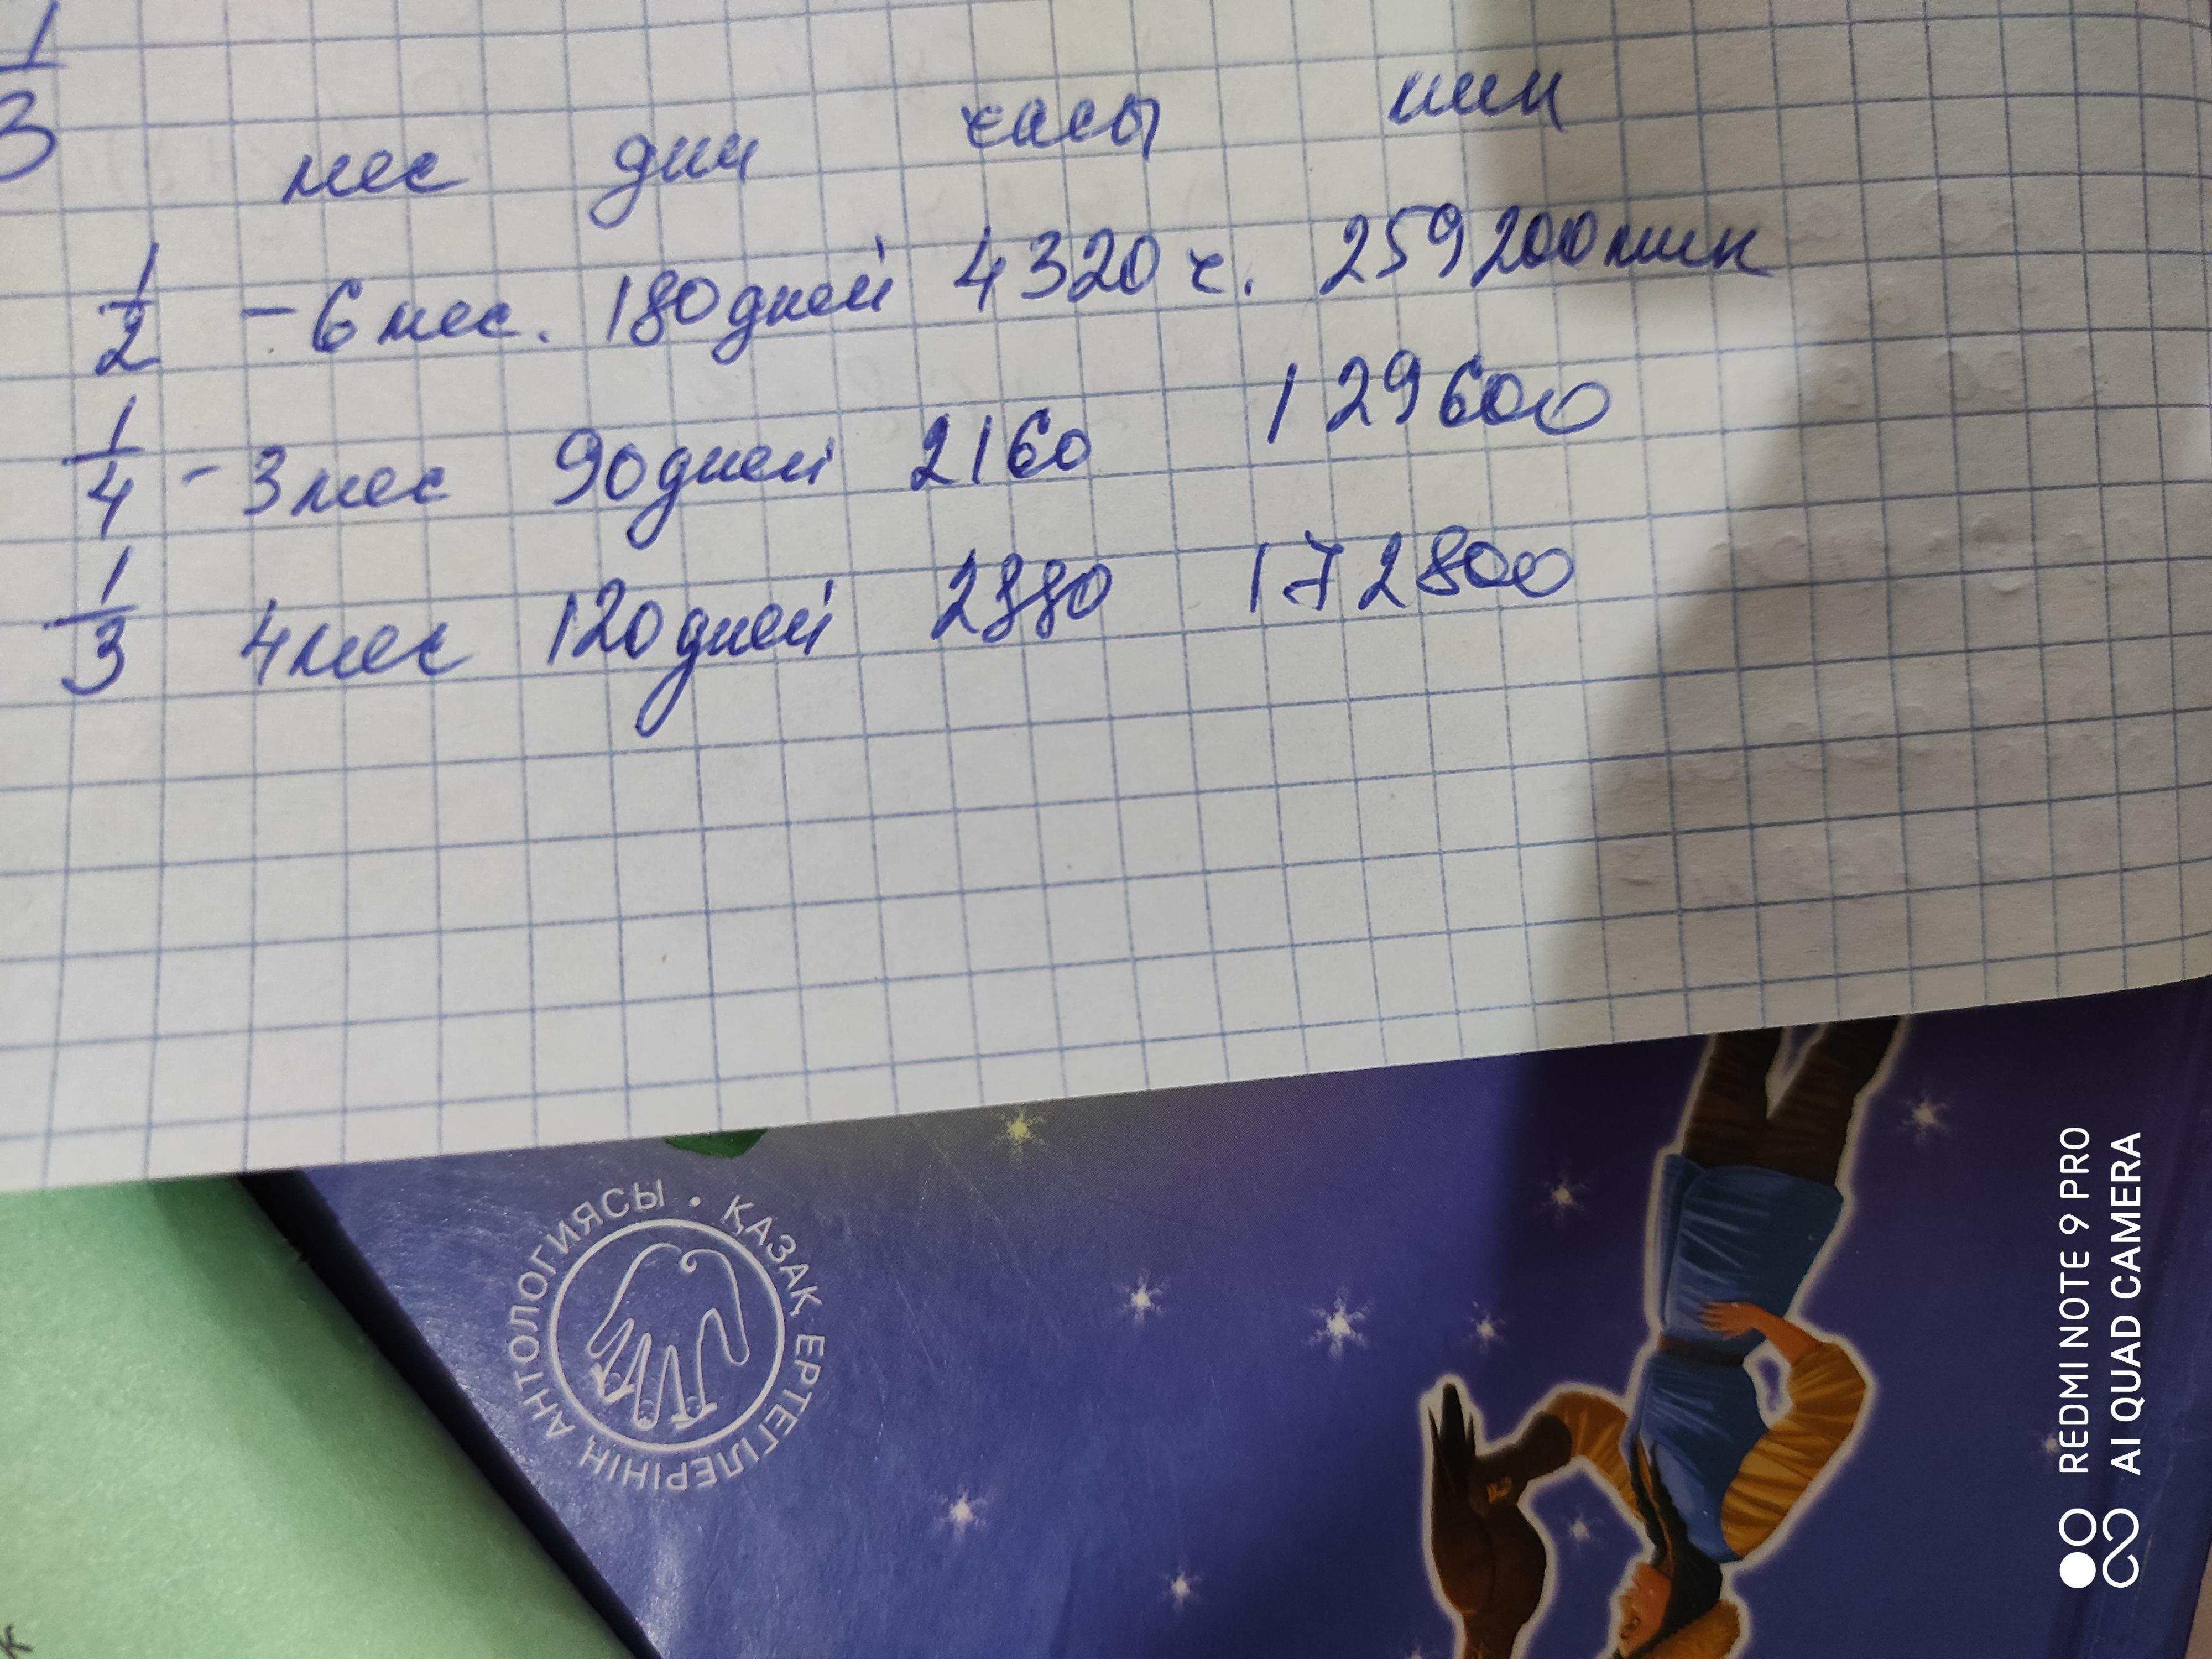 1
3
мес дни часы мин
1/2 - 6 мес. 180 дней 4320 ч. 259200 мин
1/4 - 3 мес 90 дней 2160 129600
1/3 4 мес 120 дней 2880 172800
ҚАЗАҚ ЕРТЕГІЛЕРІНІҢ АНТОЛОГИЯСЫ •
REDMI NOTE 9 PRO
AI QUAD CAMERA
к